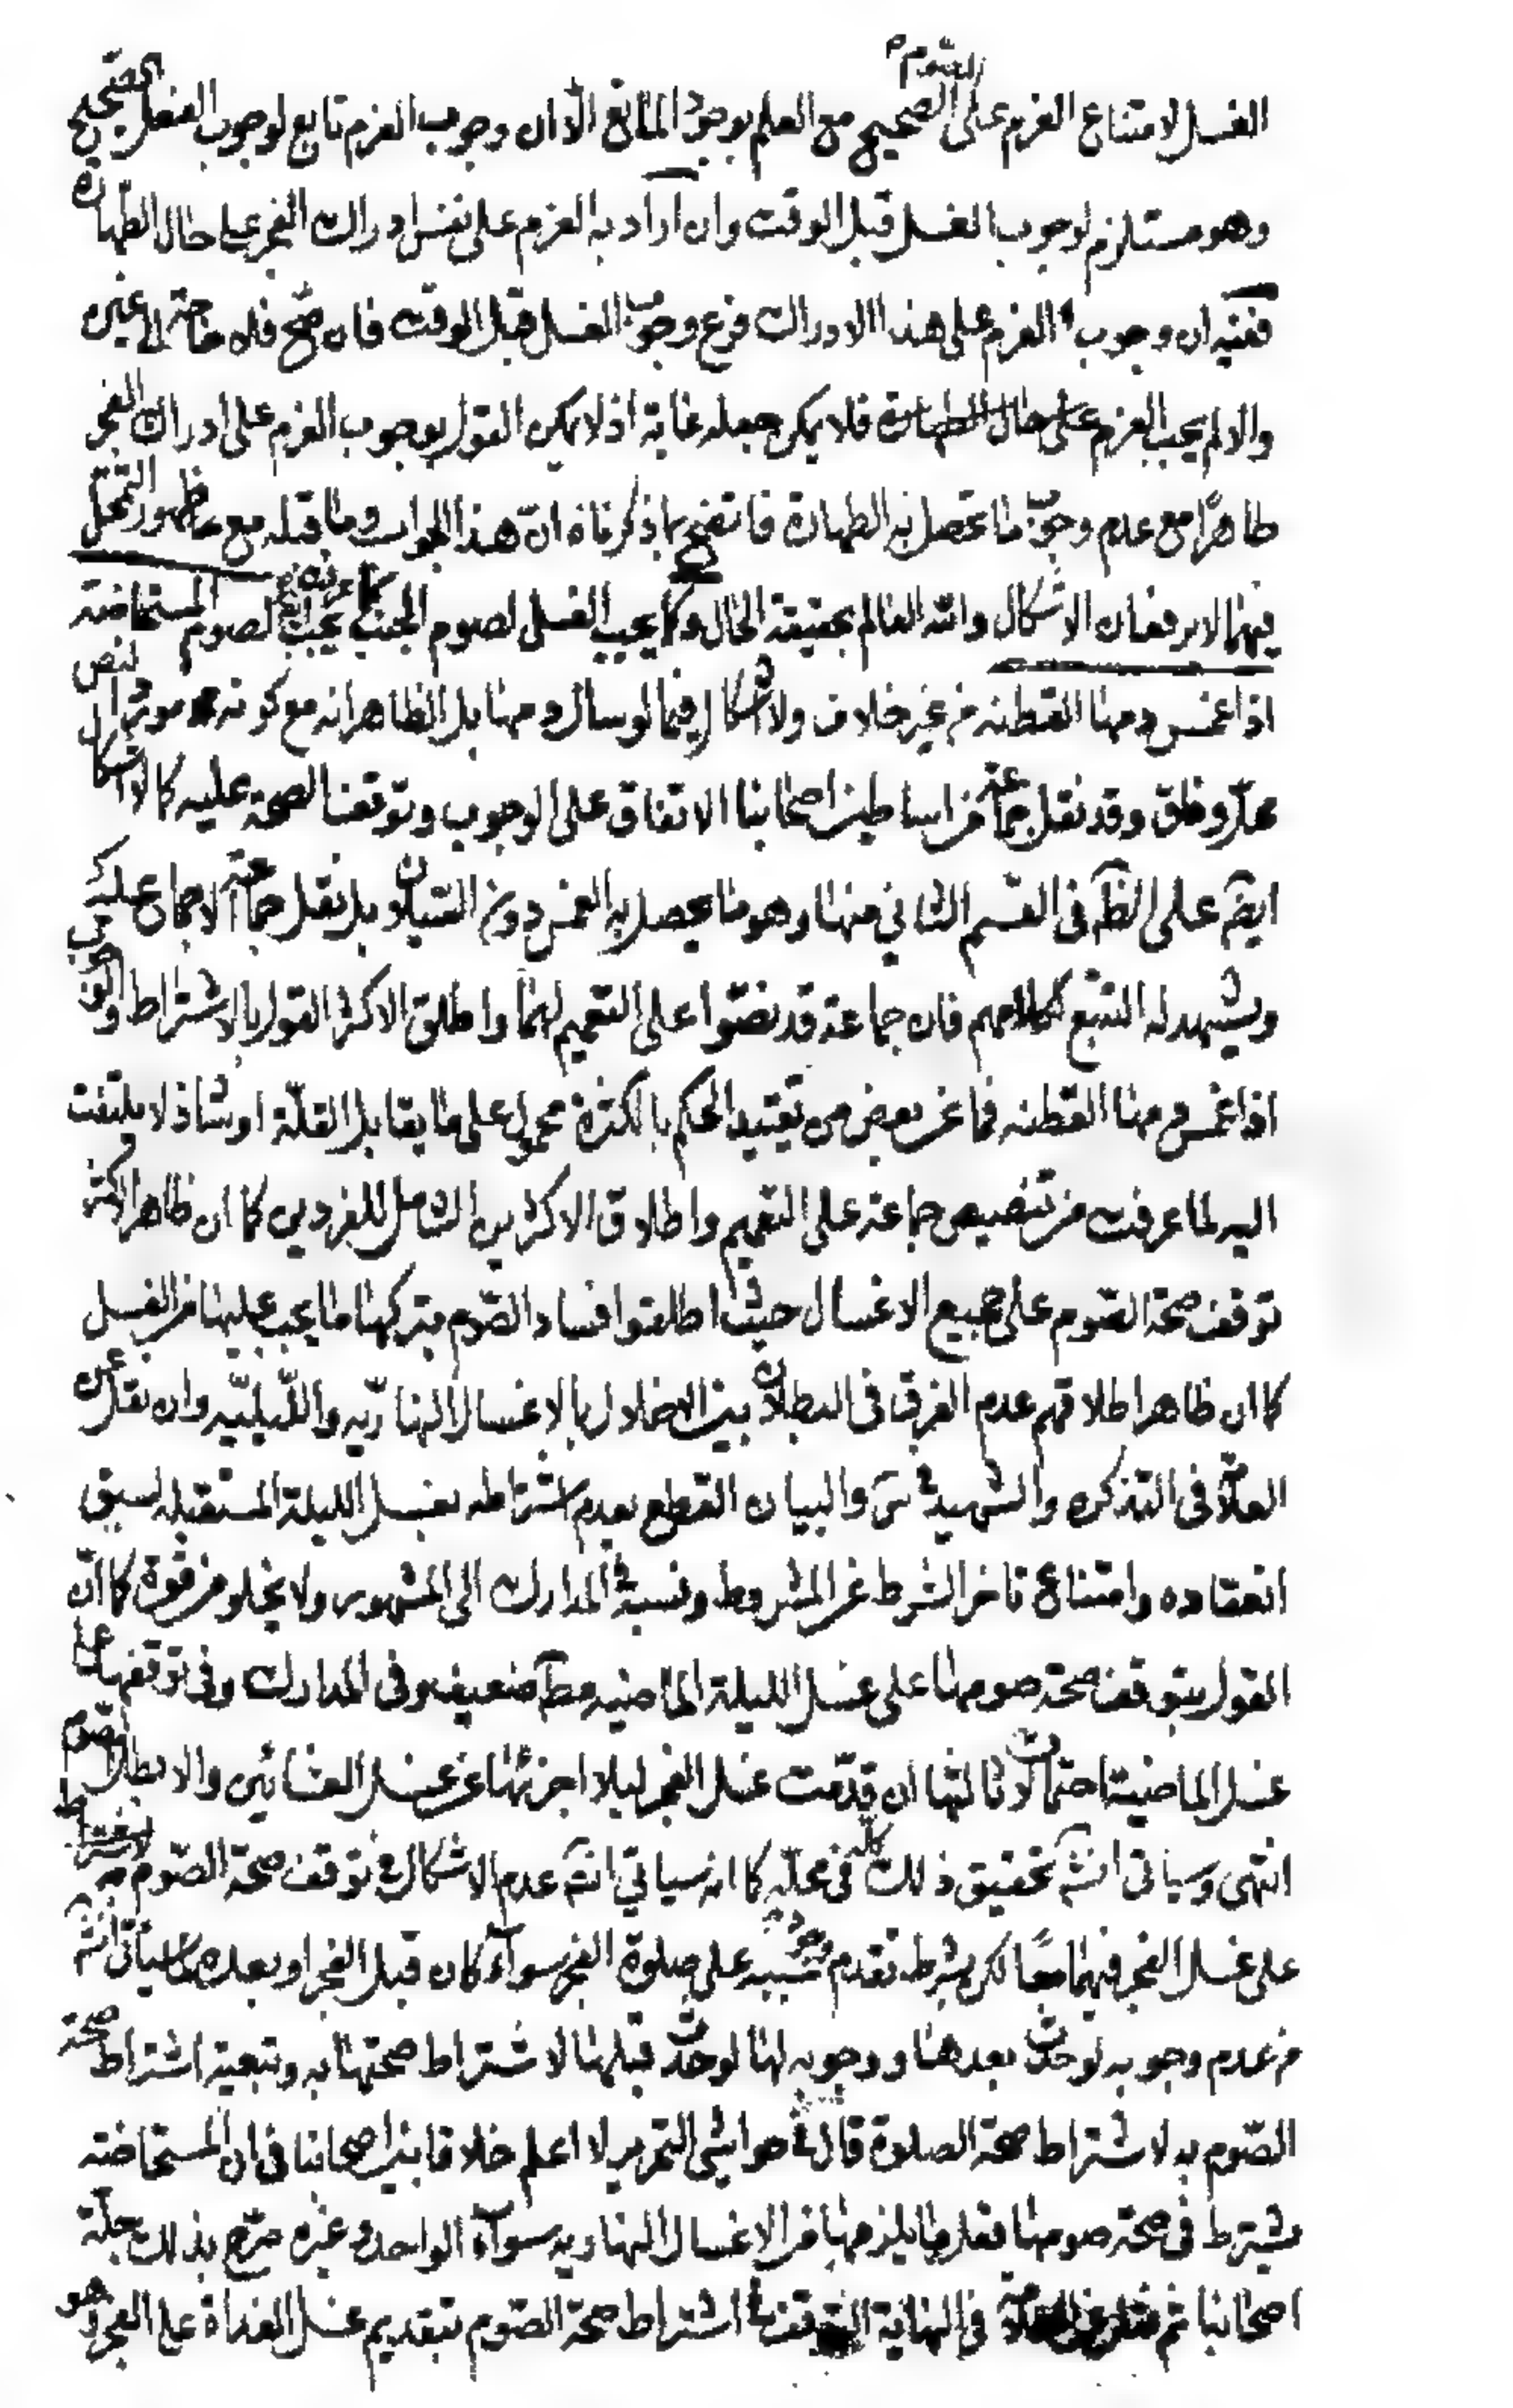 الغسل لامتناع العزم على الصوم الصحيح مع العلم بوجود المانع الا ان وجوب العزم تابع لوجوب الفعل الصحيح
وهو مستلزم لوجوب الغسل قبل الوقت وان اراد به العزم على نفس ادراك الفجر على حال الطهارة
ففيه ان وجوب العزم على هذا الادراك فرع وجوب الغسل قبل الوقت فان صح فلا حاجة الى غيره
والا لم يجب العزم على حال الطهارة فلا يمكن جعله غاية اذ لا يمكن القول بوجوب العزم على ادراك الفجر
طاهرًا مع عدم وجوب ما تحصل به الطهارة فاتضح بما ذكرناه انّ هذا الجواب وما قبله مع ظهور التمحل
فيهما لا يرفعان الاشكال والله العالم بحقيقة الحال وكما يجب الغسل لصوم الجنب يجب لصوم المستحاضة
اذا غمس دمها القطنه من غير خلاف ولا اشكال فيما لو سال دمها بل الظاهر انه مع كونه
وفاق وقد نقل جماعة من اساطين اصحابنا الاتفاق على الوجوب وتوقف الصحة عليه كالاشكال
ايضا على الظ في القسم الثاني منها وهو ما يحصل به الغمس دون السيلان بل نقل جماعة الاجماع عليه
ويشهد له التتبع لكلامهم فان جماعة قد نصّوا على التعميم لهما واطلق الاكثر القول بالاشتراط
اذا غمس دمها القطنه فما عن بعض من تقييد الحكم بالكثرة محمول على ما يقابل القلّة او شاذ لا يلتفت
اليه لما عرفت من تنصيص جماعة على التعميم واطلاق الاكثرين الشامل للفردين كما ان ظاهر الاكثر
توقف صحة الصّوم على جميع الاغسال حيث اطلقوا فساد الصّوم بتركها ما يجب عليها من الغسل
كما ان ظاهر اطلاقهم عدم الفرق في البطلان بين الاخلال بالاغسال النهاريّه واللّيليّه وان نقل عن
العلامة في التذكره والشهيد في س والبيان القطع بعدم اشتراطه بغسل الليلة المستقبله لسبق
انعقاده وامتناع تاخر الشرط عن المشروط ونسبه في المدارك الى المشهور ولا يخلو من قوة كما انّ
القول بتوقف صحة صومها على غسل الليلة الماضيه مطلقا ضعيف وفي المدارك وفي توقفها على
غسل الماضية احتمالات ثالثها ان قدّمت غسل الفجر ليلا اجزئها عن غسل العشائين والا بطل الصوم
انتهى وسياتي انش تحقيق ذلك كله في محلّه كما انه سياتي انش عدم الاشكال في توقف صحة الصّوم
على غسل الفجر فيهما معًا لكن بشرط تقدم وجود سببه على صلوة الفجر سواء كان قبل الفجر او بعده كما سياتي انش
من عدم وجوبه لو حدث بعدها ووجوبه لها لو حدث قبلها لاشتراط صحتها به وتبعية اشتراط صحة
الصّوم به لاشتراط صحة الصلاة قال في حواشي التحرير لا اعلم خلافا بين اصحابنا في ان المستحاضة
يشترط في صحة صومها فعل ما يلزمها من الاغسال النهاريه سواء الواحد وغيره صرّح بذلك جلّة
اصحابنا ثم نقل عن العلامة في النهاية التوقف في اشتراط صحة الصّوم بتقديم غسل الغداة على الفجر وهو